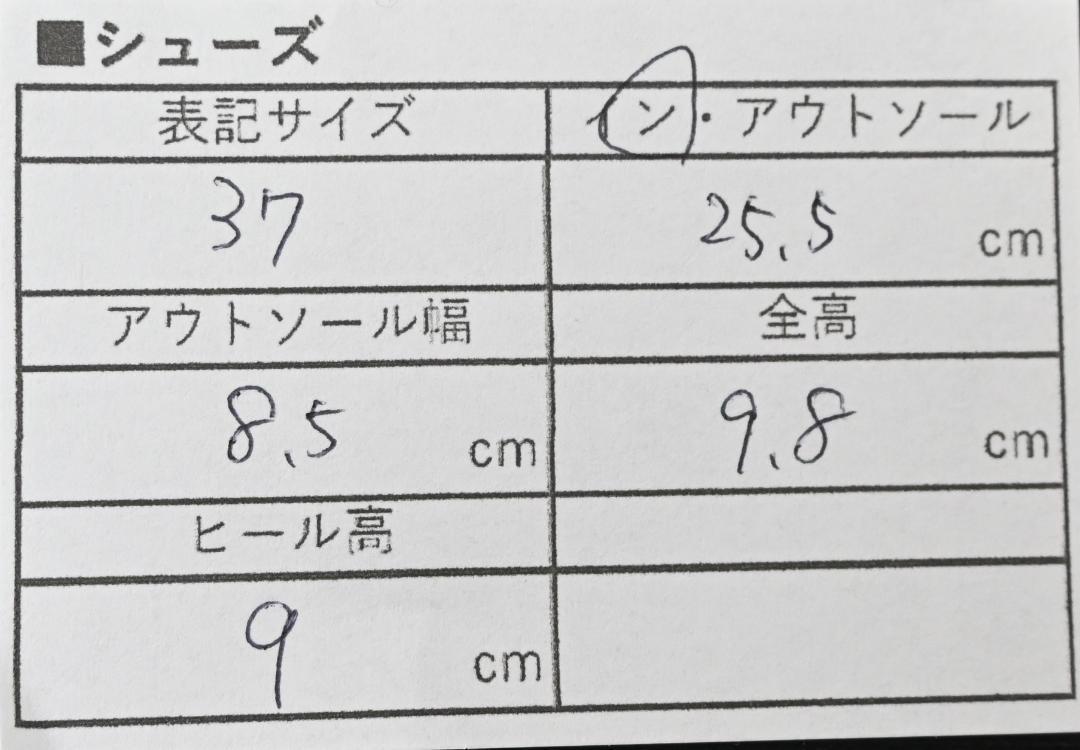 ■シューズ
表記サイズ
イン・アウトソール
37
25.5 cm
アウトソール幅
全高
8.5 cm
9.8 cm
ヒール高
9 cm